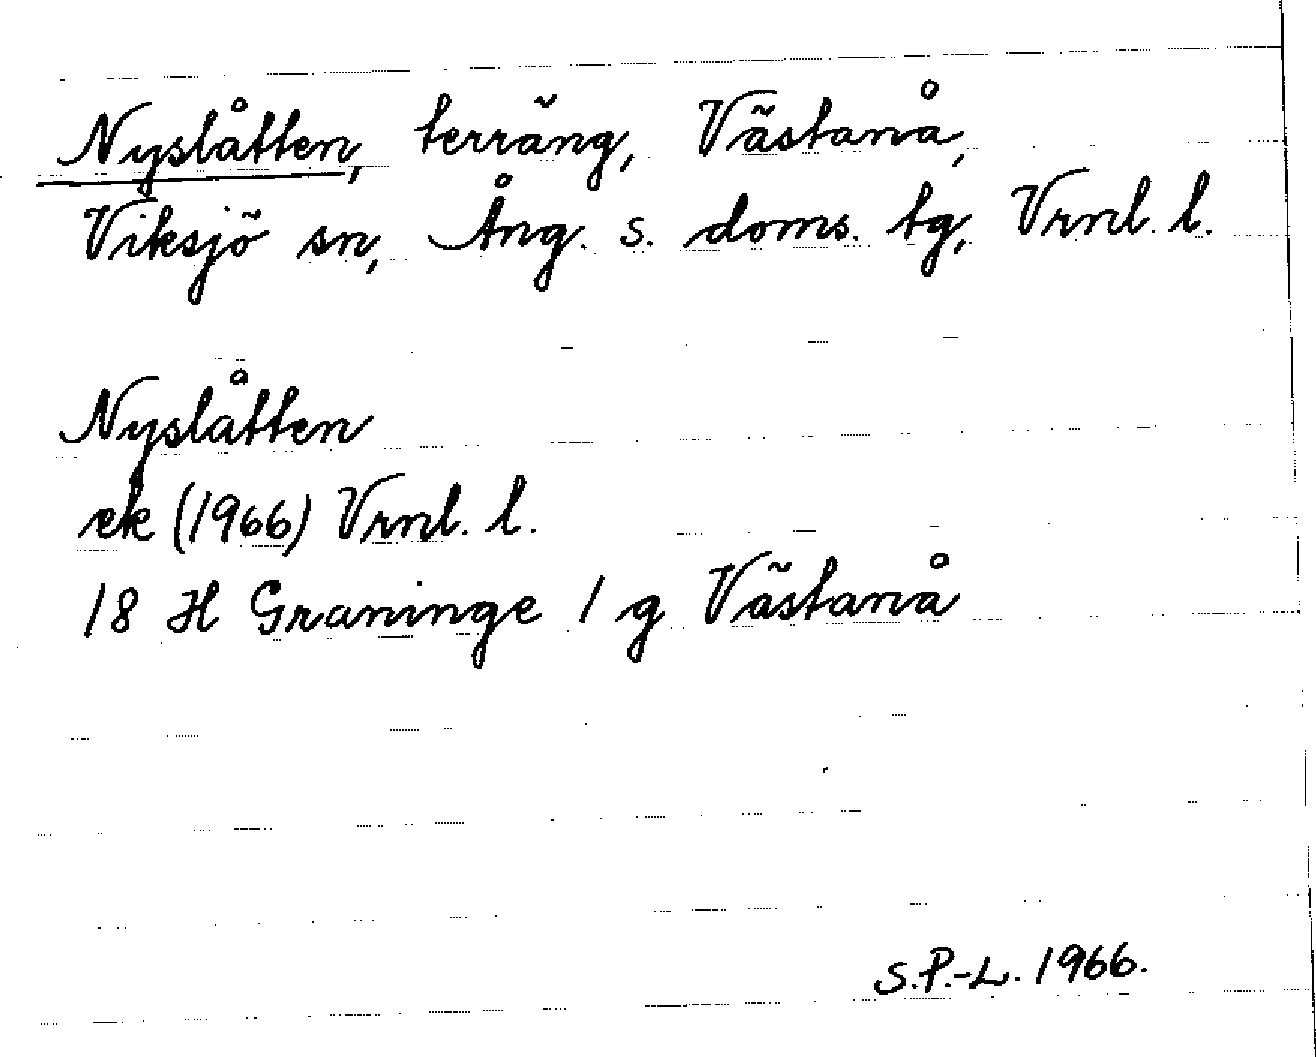 Nyslåtten, terräng, Västanå,
Viksjö sn, Ång. s. doms. tg, Vrnl. l.
Nyslåtten
ek (1966) Vrnl. l.
18 H Graninge 1 g Västanå
S.P.-L. 1966.